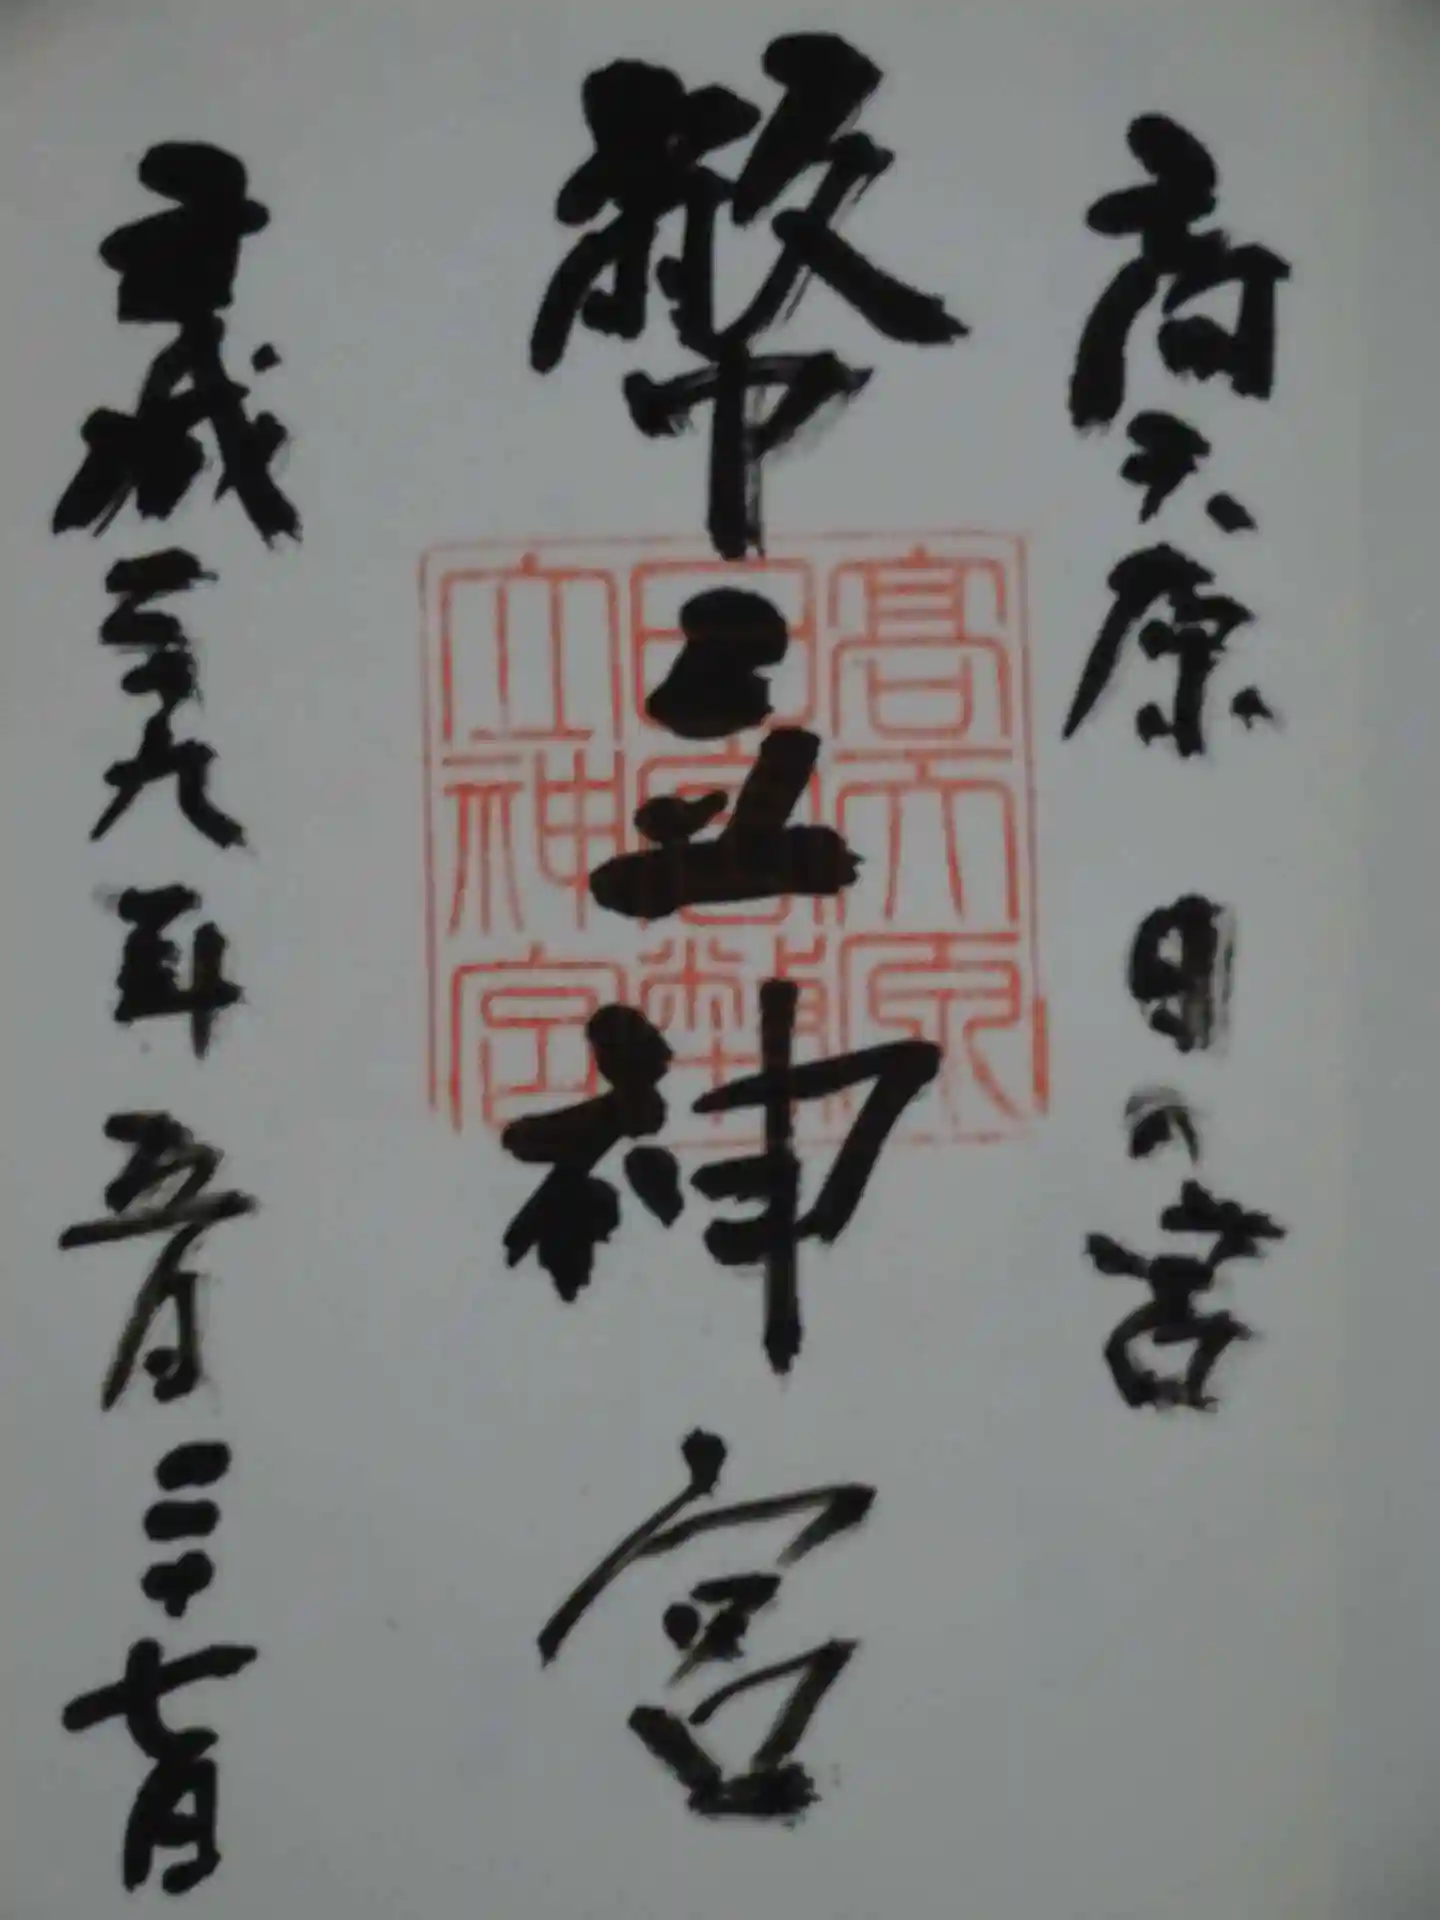 高天原 日の宮
幣立神宮
平成二十九年五月二十七日
高天原
日宮幣
立神宮